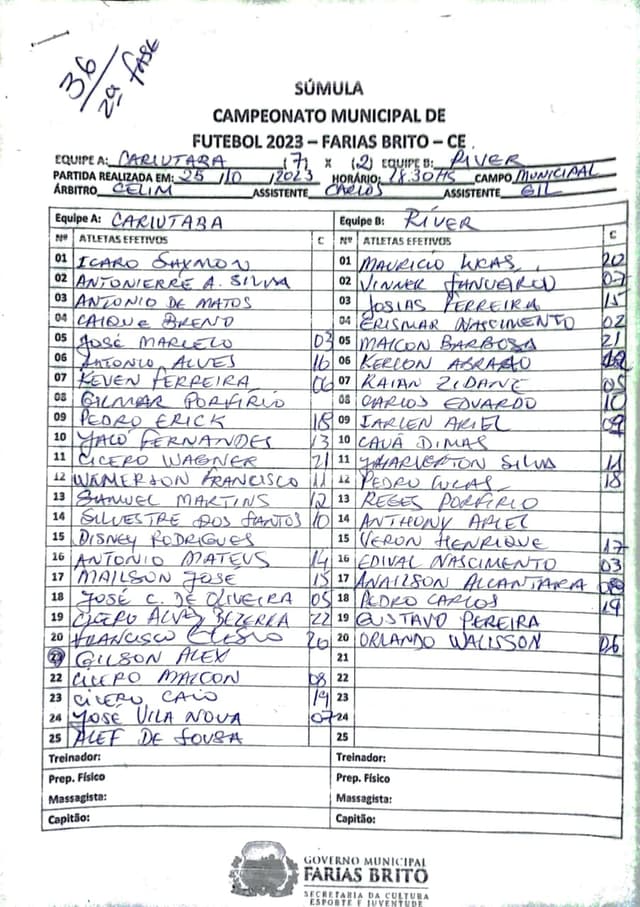 36/2ª FASE
SÚMULA
CAMPEONATO MUNICIPAL DE
FUTEBOL 2023 – FARIAS BRITO – CE.
EQUIPE A: CARIUTABA (7) X (2) EQUIPE B: RIVER
PARTIDA REALIZADA EM: 25/10/2023 HORÁRIO: 18:30HS CAMPO MUNICIPAL
ÁRBITRO CELIM ASSISTENTE CARLOS ASSISTENTE GIL
Equipe A: CARIUTABA Equipe B: RIVER
Nº ATLETAS EFETIVOS C Nº ATLETAS EFETIVOS C
01 ICARO SAYMON 01 MAURICIO LUCAS 20
02 ANTONIERRE A. SILVA 02 VINNER JANUARIO 07
03 ANTONIO DE MATOS 03 JOSIAS FERREIRA 15
04 CAIQUE BRENO 04 ERISMAR NASCIMENTO 02
05 JOSÉ MARCELO 03 05 MAICON BARBOSA 21
06 ANTONIO ALVES 16 06 KERLON ABRAÃO
07 KEVEN FERREIRA 06 07 RAIAN ZIDANE 05
08 GILMAR PORFÍRIO 08 CARLOS EDUARDO 10
09 PEDRO ERICK 18 09 IARLEN ARIEL 09
10 YACÓ FERNANDES 13 10 CAUÃ DIMAS
11 CICERO WAGNER 21 11 SILVA 11
12 WAMERSON FRANCISCO 11 12 PEDRO LUCAS 18
13 SAMUEL MARTINS 12 13 REGES PORFIRIO
14 SILVESTRE DOS SANTOS 10 14 ANTHONY ARIEL
15 DISNEY RODRIGUES 15 VERON HENRIQUE 17
16 ANTONIO MATEUS 14 16 EDIVAL NASCIMENTO 03
17 MAILSON JOSE 15 17 ANAILSON ALCANTARA
18 JOSÉ C. DE OLIVEIRA 05 18 PEDRO CARLOS 19
19 CICERO ALVES BEZERRA 22 19 GUSTAVO PEREIRA
20 FRANCISCO 20 20 ORLANDO WALISSON 06
21 GILSON ALEX 21
22 CICERO MAICON 08 22
23 CICERO CAIO 19 23
24 JOSÉ VILA NOVA 07 24
25 ALEF DE SOUSA 25
Treinador: Treinador:
Prep. Físico Prep. Físico
Massagista: Massagista:
Capitão: Capitão:
GOVERNO MUNICIPAL
FARIAS BRITO
SECRETARIA DA CULTURA
ESPORTE E JUVENTUDE